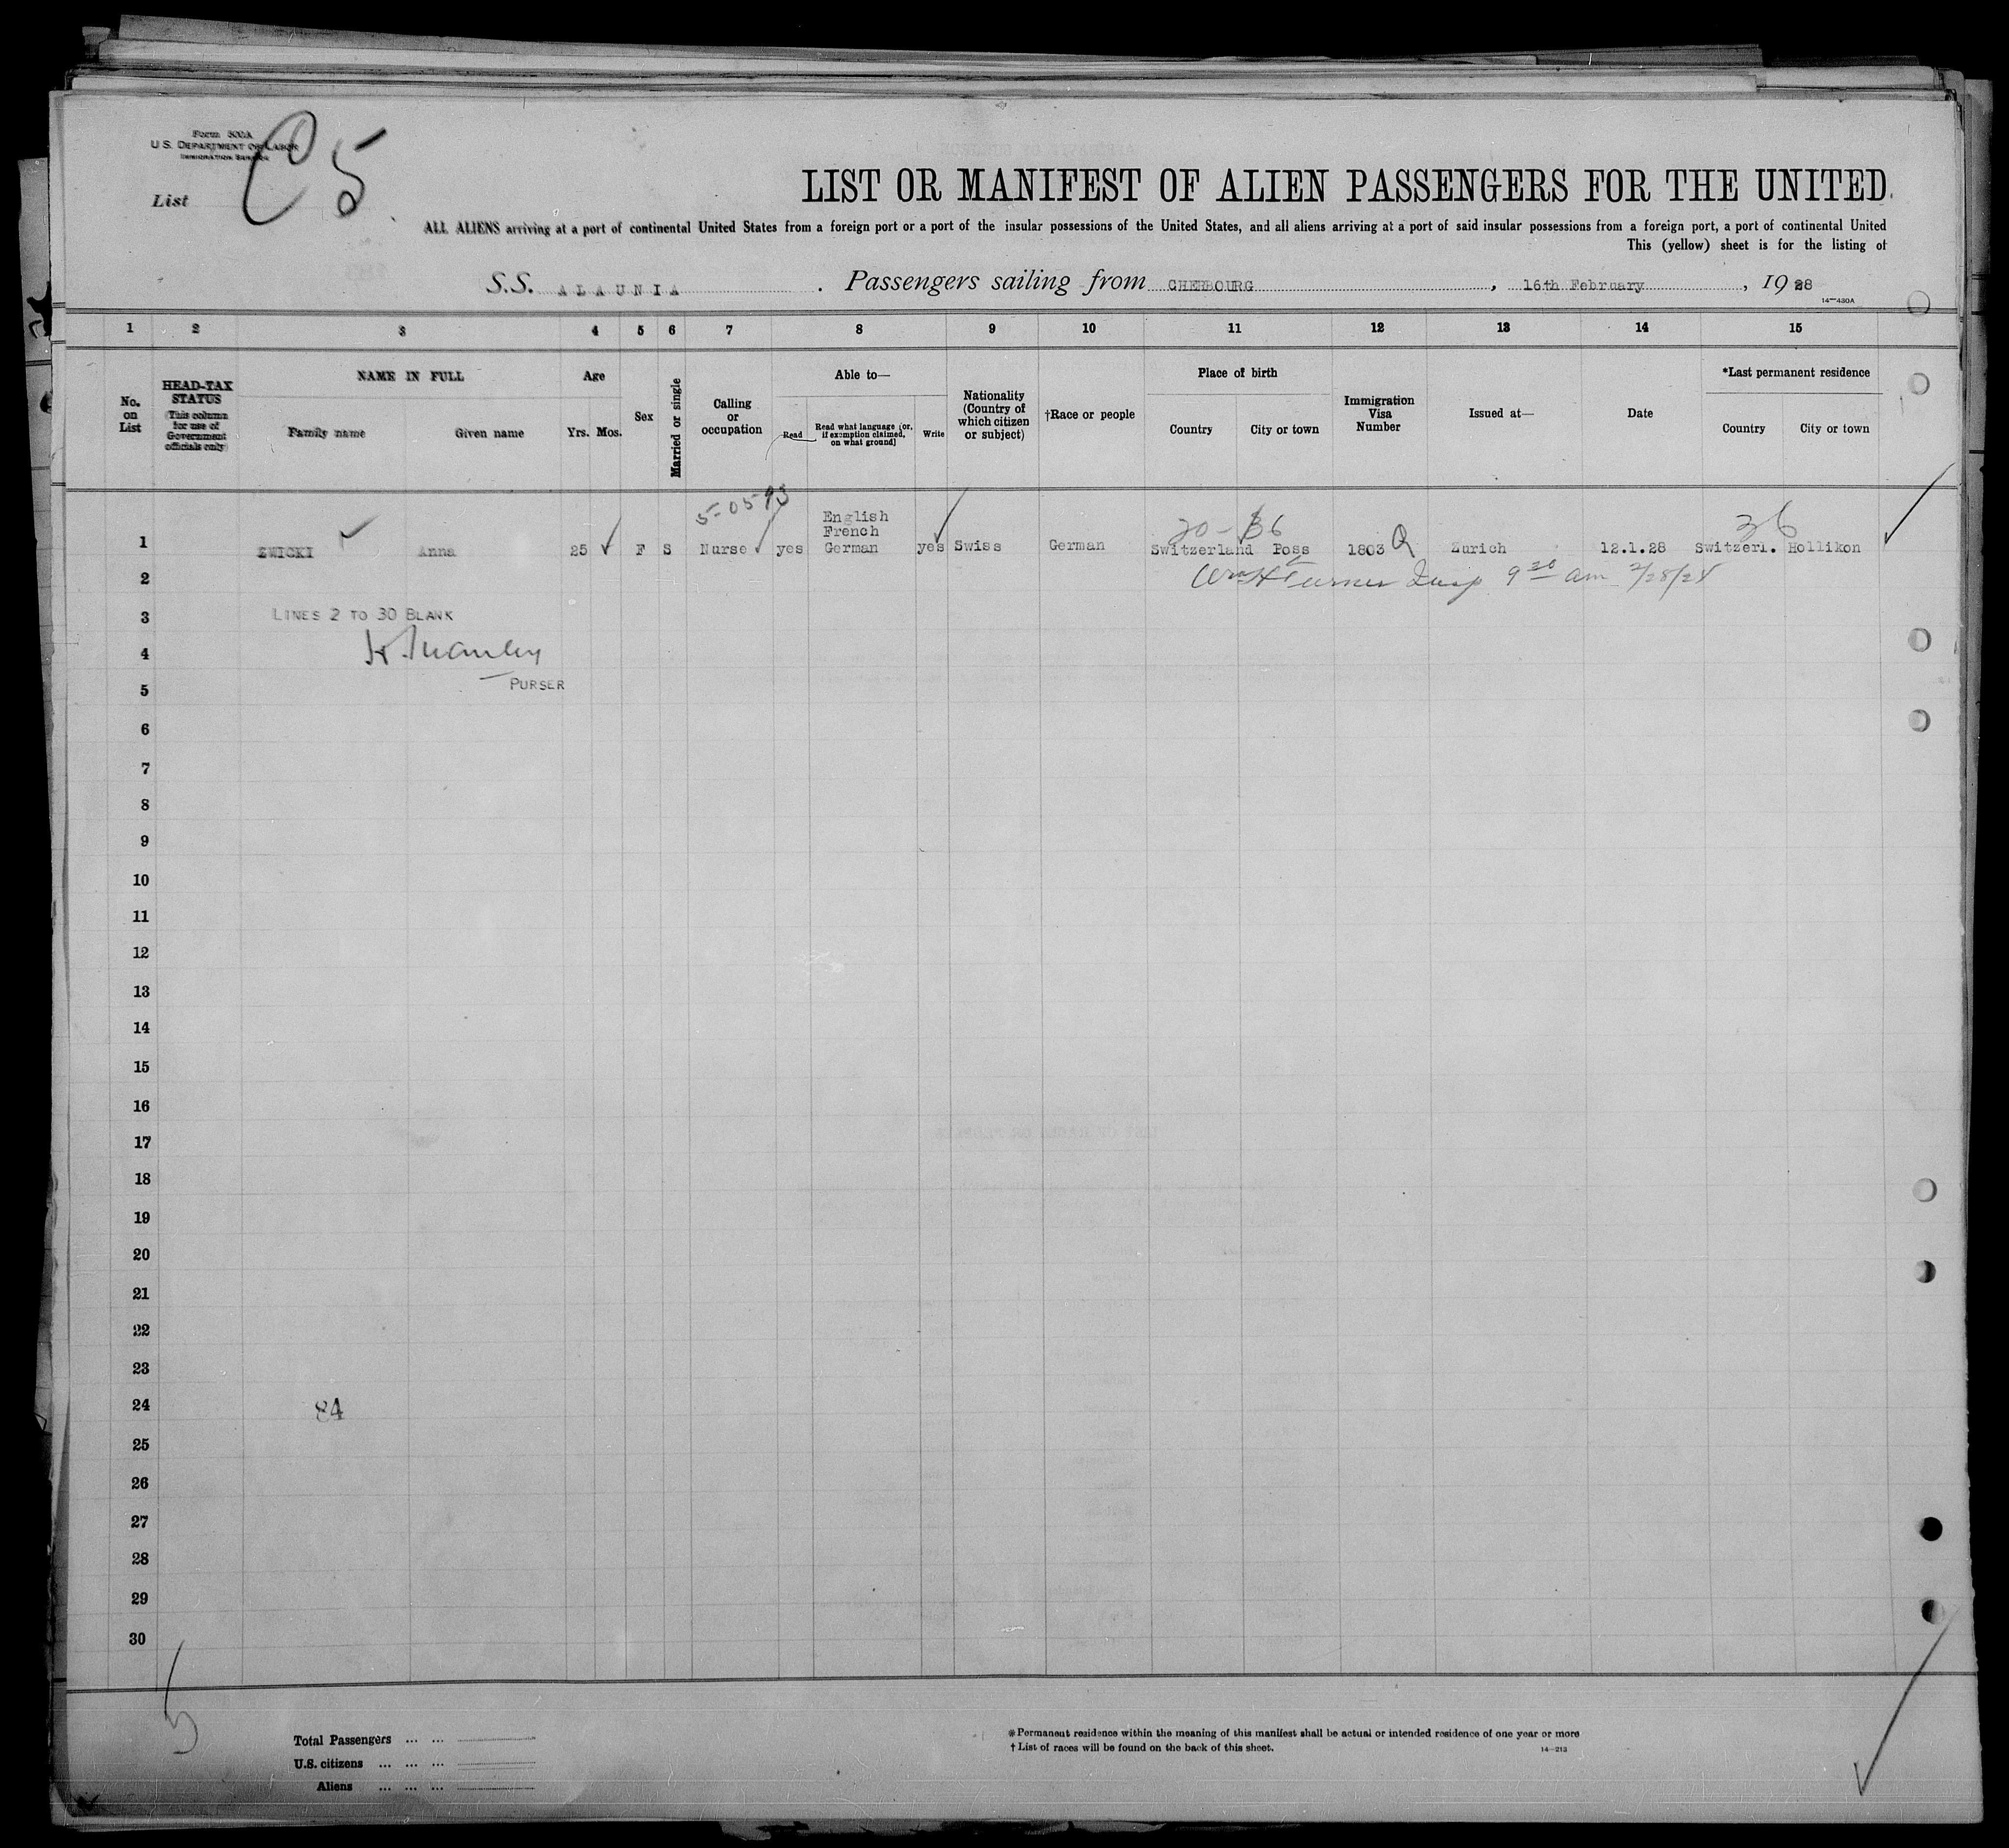 Form 500A
U.S. DEPARTMENT OF LABOR
IMMIGRATION SERVICE
List 5
LIST OR MANIFEST OF ALIEN PASSENGERS FOR THE UNITED
ALL ALIENS arriving at a port of continental United States from a foreign port or a port of the insular possessions of the United States, and all aliens arriving at a port of said insular possessions from a foreign port, a port of continental United
This (yellow) sheet is for the listing of
S.S. ALAUNIA . Passengers sailing from CHERBOURG , 16th February , 1928
14—430A
1 2 3 4 5 6 7 8 9 10 11 12 13 14 15
No. on List
HEAD-TAX STATUS
This column for use of Government officials only
NAME IN FULL
Family name Given name
Age
Yrs. Mos.
Sex
Married or single
Calling or occupation
Able to—
Read
Read what language (or, if exemption claimed, on what ground)
Write
Nationality (Country of which citizen or subject)
†Race or people
Place of birth
Country City or town
Immigration Visa Number
Issued at—
Date
*Last permanent residence
Country City or town
5-0593
English
French
20-36 36
1 ZWICKI Anna 25 F S Nurse yes German yes Swiss German Switzerland Poss 1803 Q Zurich 12.1.28 Switzerl. Hollikon
2 Wm H Turner Insp 9 30 am 2/28/28
3 LINES 2 TO 30 BLANK
4
5 PURSER
6
7
8
9
10
11
12
13
14
15
16
17
18
19
20
21
22
23
24 84
25
26
27
28
29
30
5
Total Passengers ... ...
U.S. citizens ... ... ...
Aliens ... ... ...
*Permanent residence within the meaning of this manifest shall be actual or intended residence of one year or more
† List of races will be found on the back of this sheet.
14—213